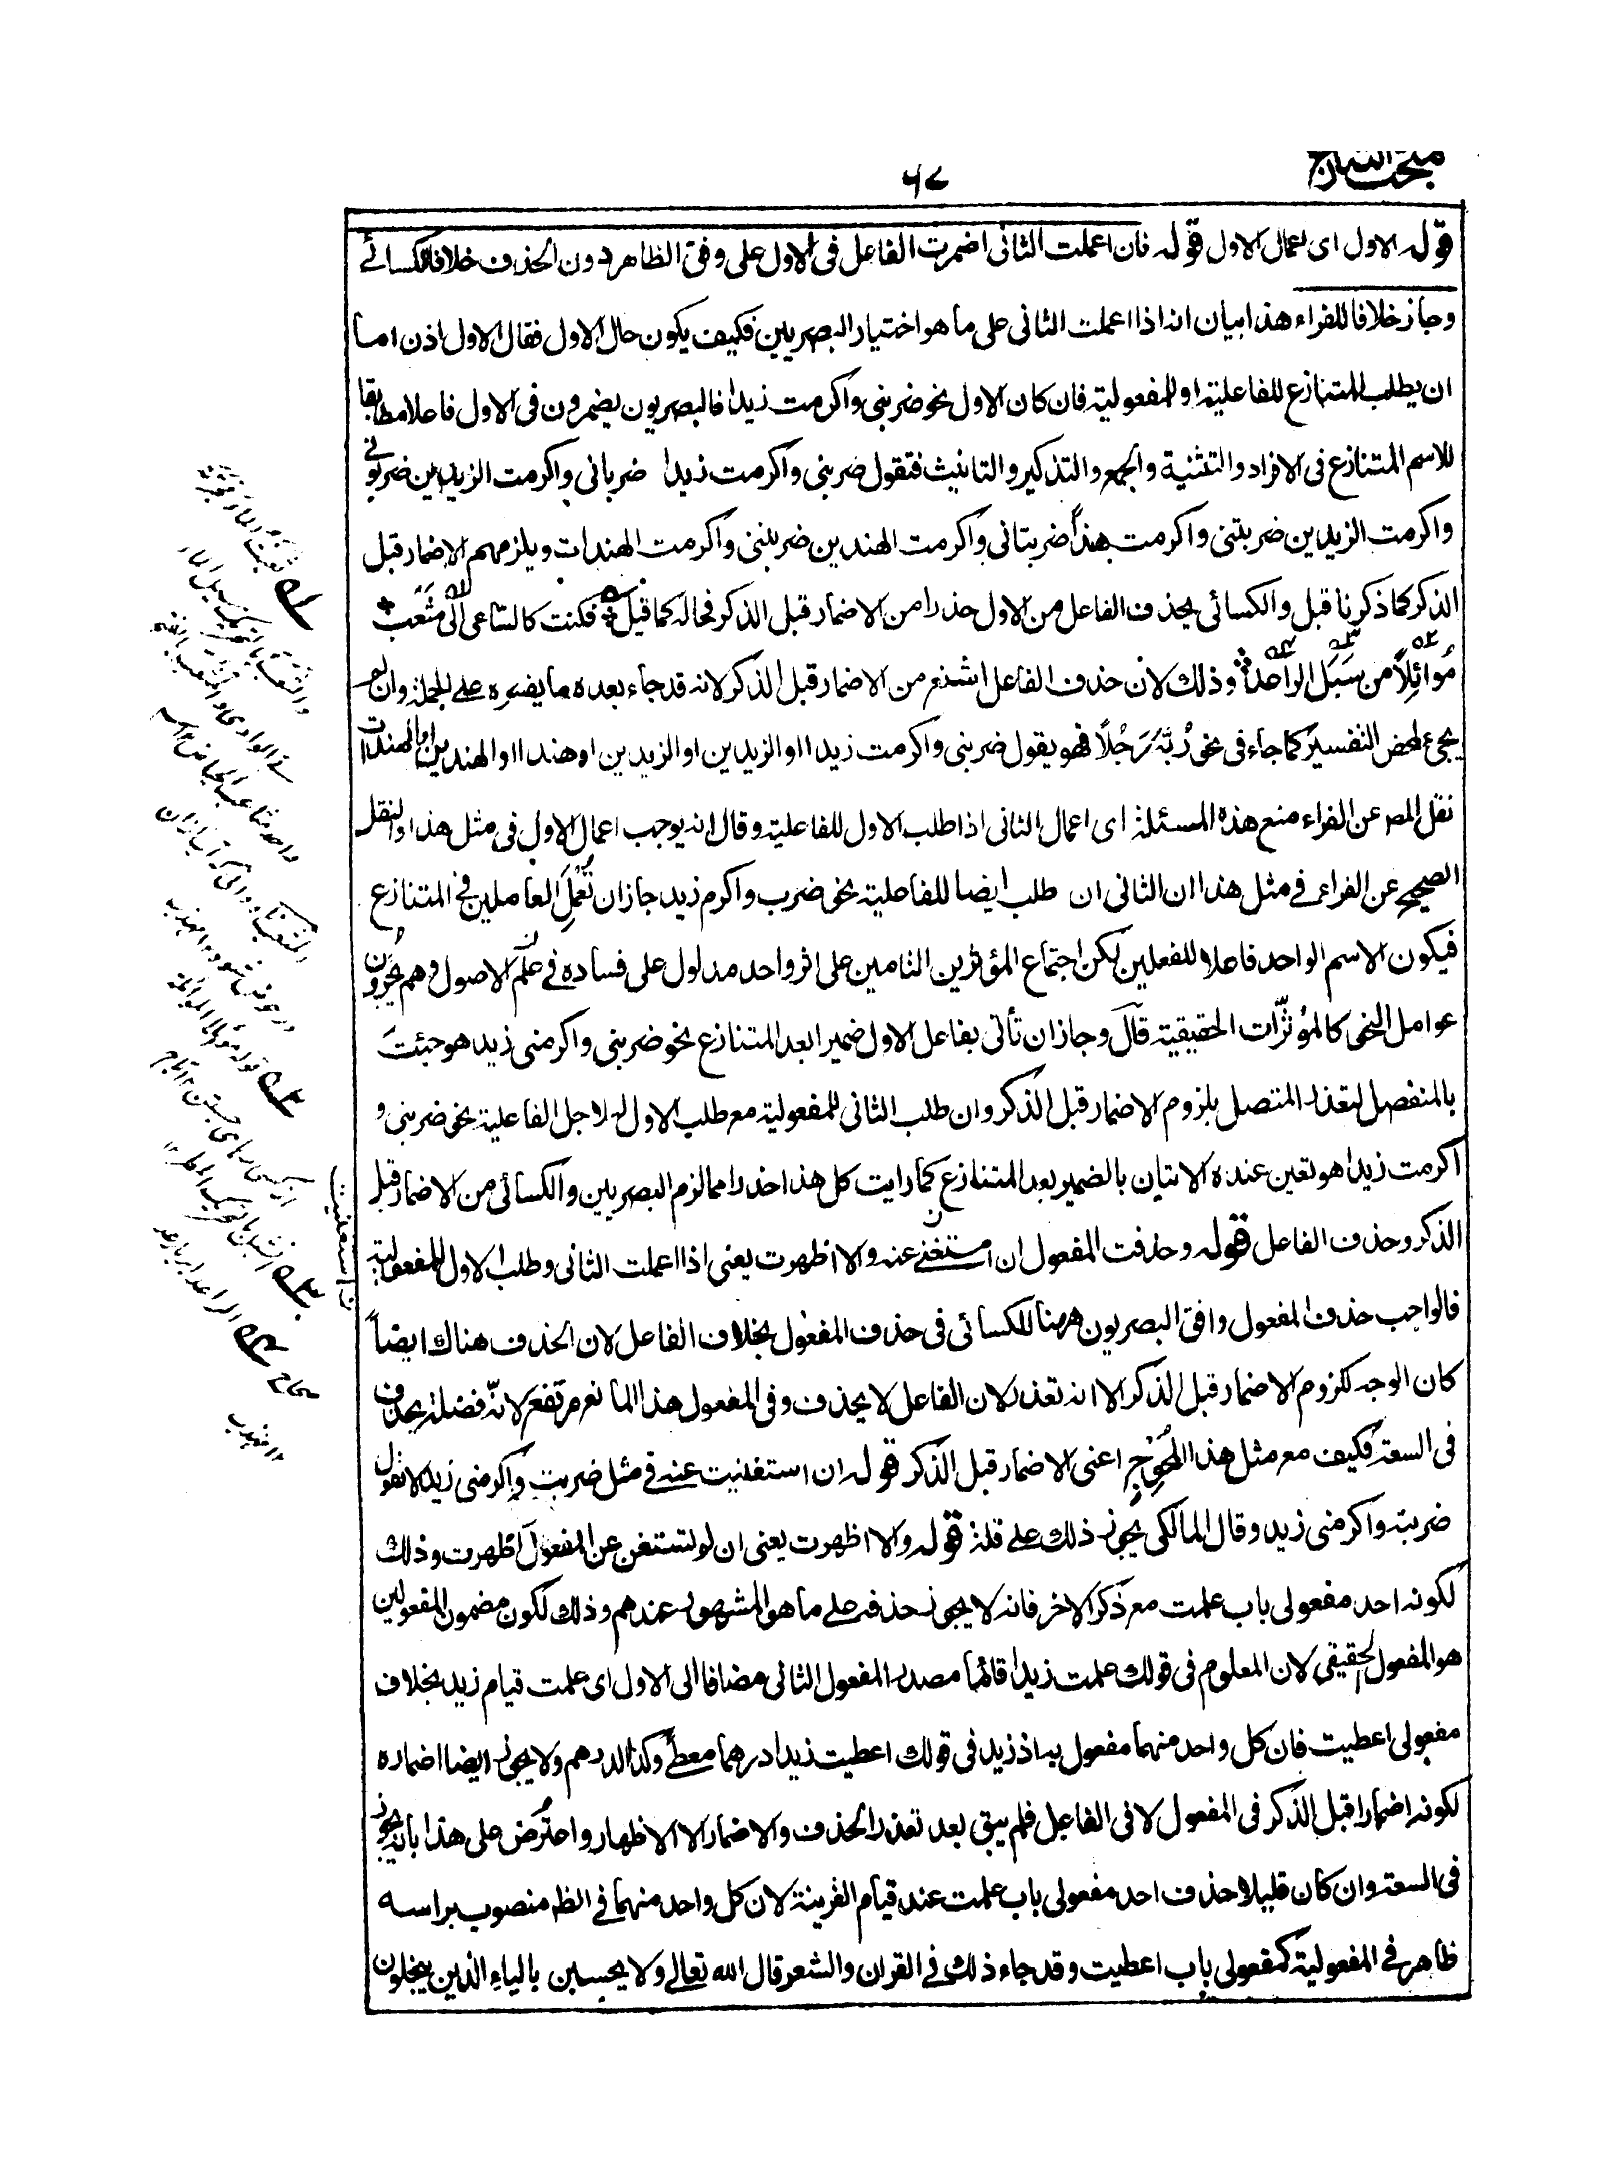 مبحث التنازع
٦٧
قوله الاول اى اعمال الاول قوله فان اعملت الثانى اضمرت الفاعل فى الاول على وفق الظاهر دون الحذف خلافا للكسائے
وجاز خلافا للفراء هذا بيان انه اذا اعملت الثانى على ما هو اختيار البصريين فكيف يكون حال الاول فقال الاول اذن اما
ان يطلب المتنازع للفاعلية او للمفعولية فان كان الاول نحو ضربنى واكرمت زيدا فالبصريون يضمرون فى الاول فاعلا مطابقا
للاسم المتنازع فى الافراد والتثنية والجمع والتذكير والتانيث فتقول ضربنى واكرمت زيدا ضربانى واكرمت الزيدين ضربونى
واكرمت الزيدين ضربتنى واكرمت هندًا ضربتانى واكرمت الهندين ضربننى واكرمت الهندات ويلزمهم الاضمار قبل
الذكر كما ذكرنا قبل والكسائى يحذف الفاعل من الاول حذرا من الاضمار قبل الذكر فحاله كما قيل فكنت كالساعى الى مَثْعَب
مُوَائِلًا من سَبَل الراعد وذلك لان حذف الفاعل اشنع من الاضمار قبل الذكر لانه قد جاء بعده ما يفسره علے الجملة وان لم
يجئ لمحض التفسير كما جاء فى نحو رُبَّهُ رَجُلًا فهو يقول ضربنى واكرمت زيدا او الزيدين او الزيدين او هندا او الهندين او الهندات
نقل المصـ عن الفراء منع هذه المسئلة اى اعمال الثانى اذا طلب الاول للفاعلية وقال انه يوجب اعمال الاول فى مثل هذا والنقل
الصحيح عن الفراء فے مثل هذا ان الثانى ان طلب ايضا للفاعلية نحو ضرب واكرم زيد جاز ان تُعْمِل العاملين فے المتنازع
فيكون الاسم الواحد فاعلا للفعلين لكن اجتماع المؤثرين التامين على اثر واحد مدلول على فساده فے علم الاصول وهم يُجرون
عوامل النحو كالمؤثّرات الحقيقية قال وجاز ان تأتى بفاعل الاول ضميرا بعد المتنازع نحو ضربنى واكرمنى زيد هو جئت
بالمنفصل لتعذر المتصل بلزوم الاضمار قبل الذكر وان طلب الثانى للمفعولية مع طلب الاول له لاجل الفاعلية نحو ضربنى و
اكرمت زيدا هو تعين عنده الاتيان بالضمير بعد المتنازع كما رايت كل هذا حذرا مما لزم البصريين والكسائى من الاضمار قبل
الذكر وحذف الفاعل قوله وحذفت المفعول ان استغنے عنه والا اظهرت يعنى اذا اعملت الثانى وطلب الاول للمفعولية
فالواجب حذف المفعول وافق البصريون ههنا للكسائى فى حذف المفعول بخلاف الفاعل لان الحذف هناك ايضاً
كان الوجه للزوم الاضمار قبل الذكر الا انه تعذر لان الفاعل لا يحذف وفى المفعول هذا المانع مرتفع لانّه فضلة يحذف
فى السعة فكيف مع مثل هذا المُحْوِج اعنى الاضمار قبل الذكر قوله ان استغنيت عنه فے مثل ضربت واكرمنى زيد لا تقول
ضربته واكرمنى زيد وقال المالكى يجوز ذلك علے قلة قوله والا اظهرت يعنى ان لو لم تستغن عن المفعول اظهرت وذلك
لكونه احد مفعولى باب علمت مع ذكر الاخر فانه لا يجوز حذفه علے ما هو المشهور عندهم وذلك لكون مضمون المفعولين
هو المفعول الحقيقى لان المعلوم فى قولك علمت زيدا قائما مصدر المفعول الثانى مضافا الى الاول اى علمت قيام زيد بخلاف
مفعولى اعطيت فان كل واحد منهما مفعول به اذ زيد فى قولك اعطيت زيدا درهما معطے وكذا الدرهم ولا يجوز ايضا اضماره
لكونه اضمارا قبل الذكر فى المفعول لا فى الفاعل فلم يبق بعد تعذر الحذف والاضمار الا الاظهار واعتُرض على هذا بانه يجوز
فى السعة وان كان قليلا حذف احد مفعولى باب علمت عند قيام القرينة لان كل واحد منهما فے الظـ منصوب براسه
ظاهر فے المفعولية كمفعولى باب اعطيت وقد جاء ذلك فے القران والشعر قال الله تعالے ولا يحسبن بالياء الذين يبخلون
ن استغنيت